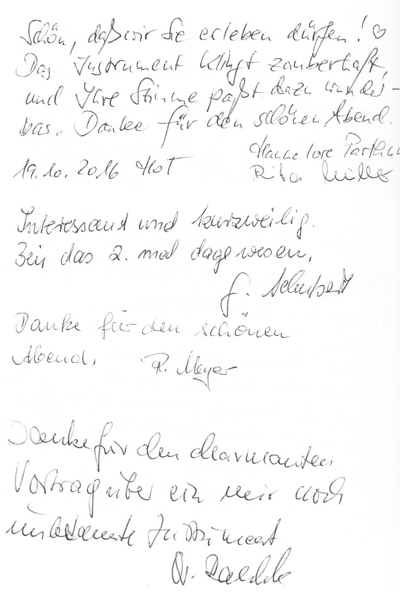 Schön, daß wir Sie erleben dürfen! ♡
Das Instrument klingt zauberhaft,
und Ihre Stimme paßt dazu wunder-
bar. Danke für den schönen Abend.
Hannelore
19.10.2016 Hot Rita Müller
Interessant und kurzweilig.
Bin das 2. mal dagewesen.
G. Schubert
Danke für den schönen
Abend. R. Meyer
Danke für den charmanten
Vortrag über ein mir noch
unbekannte Instrument